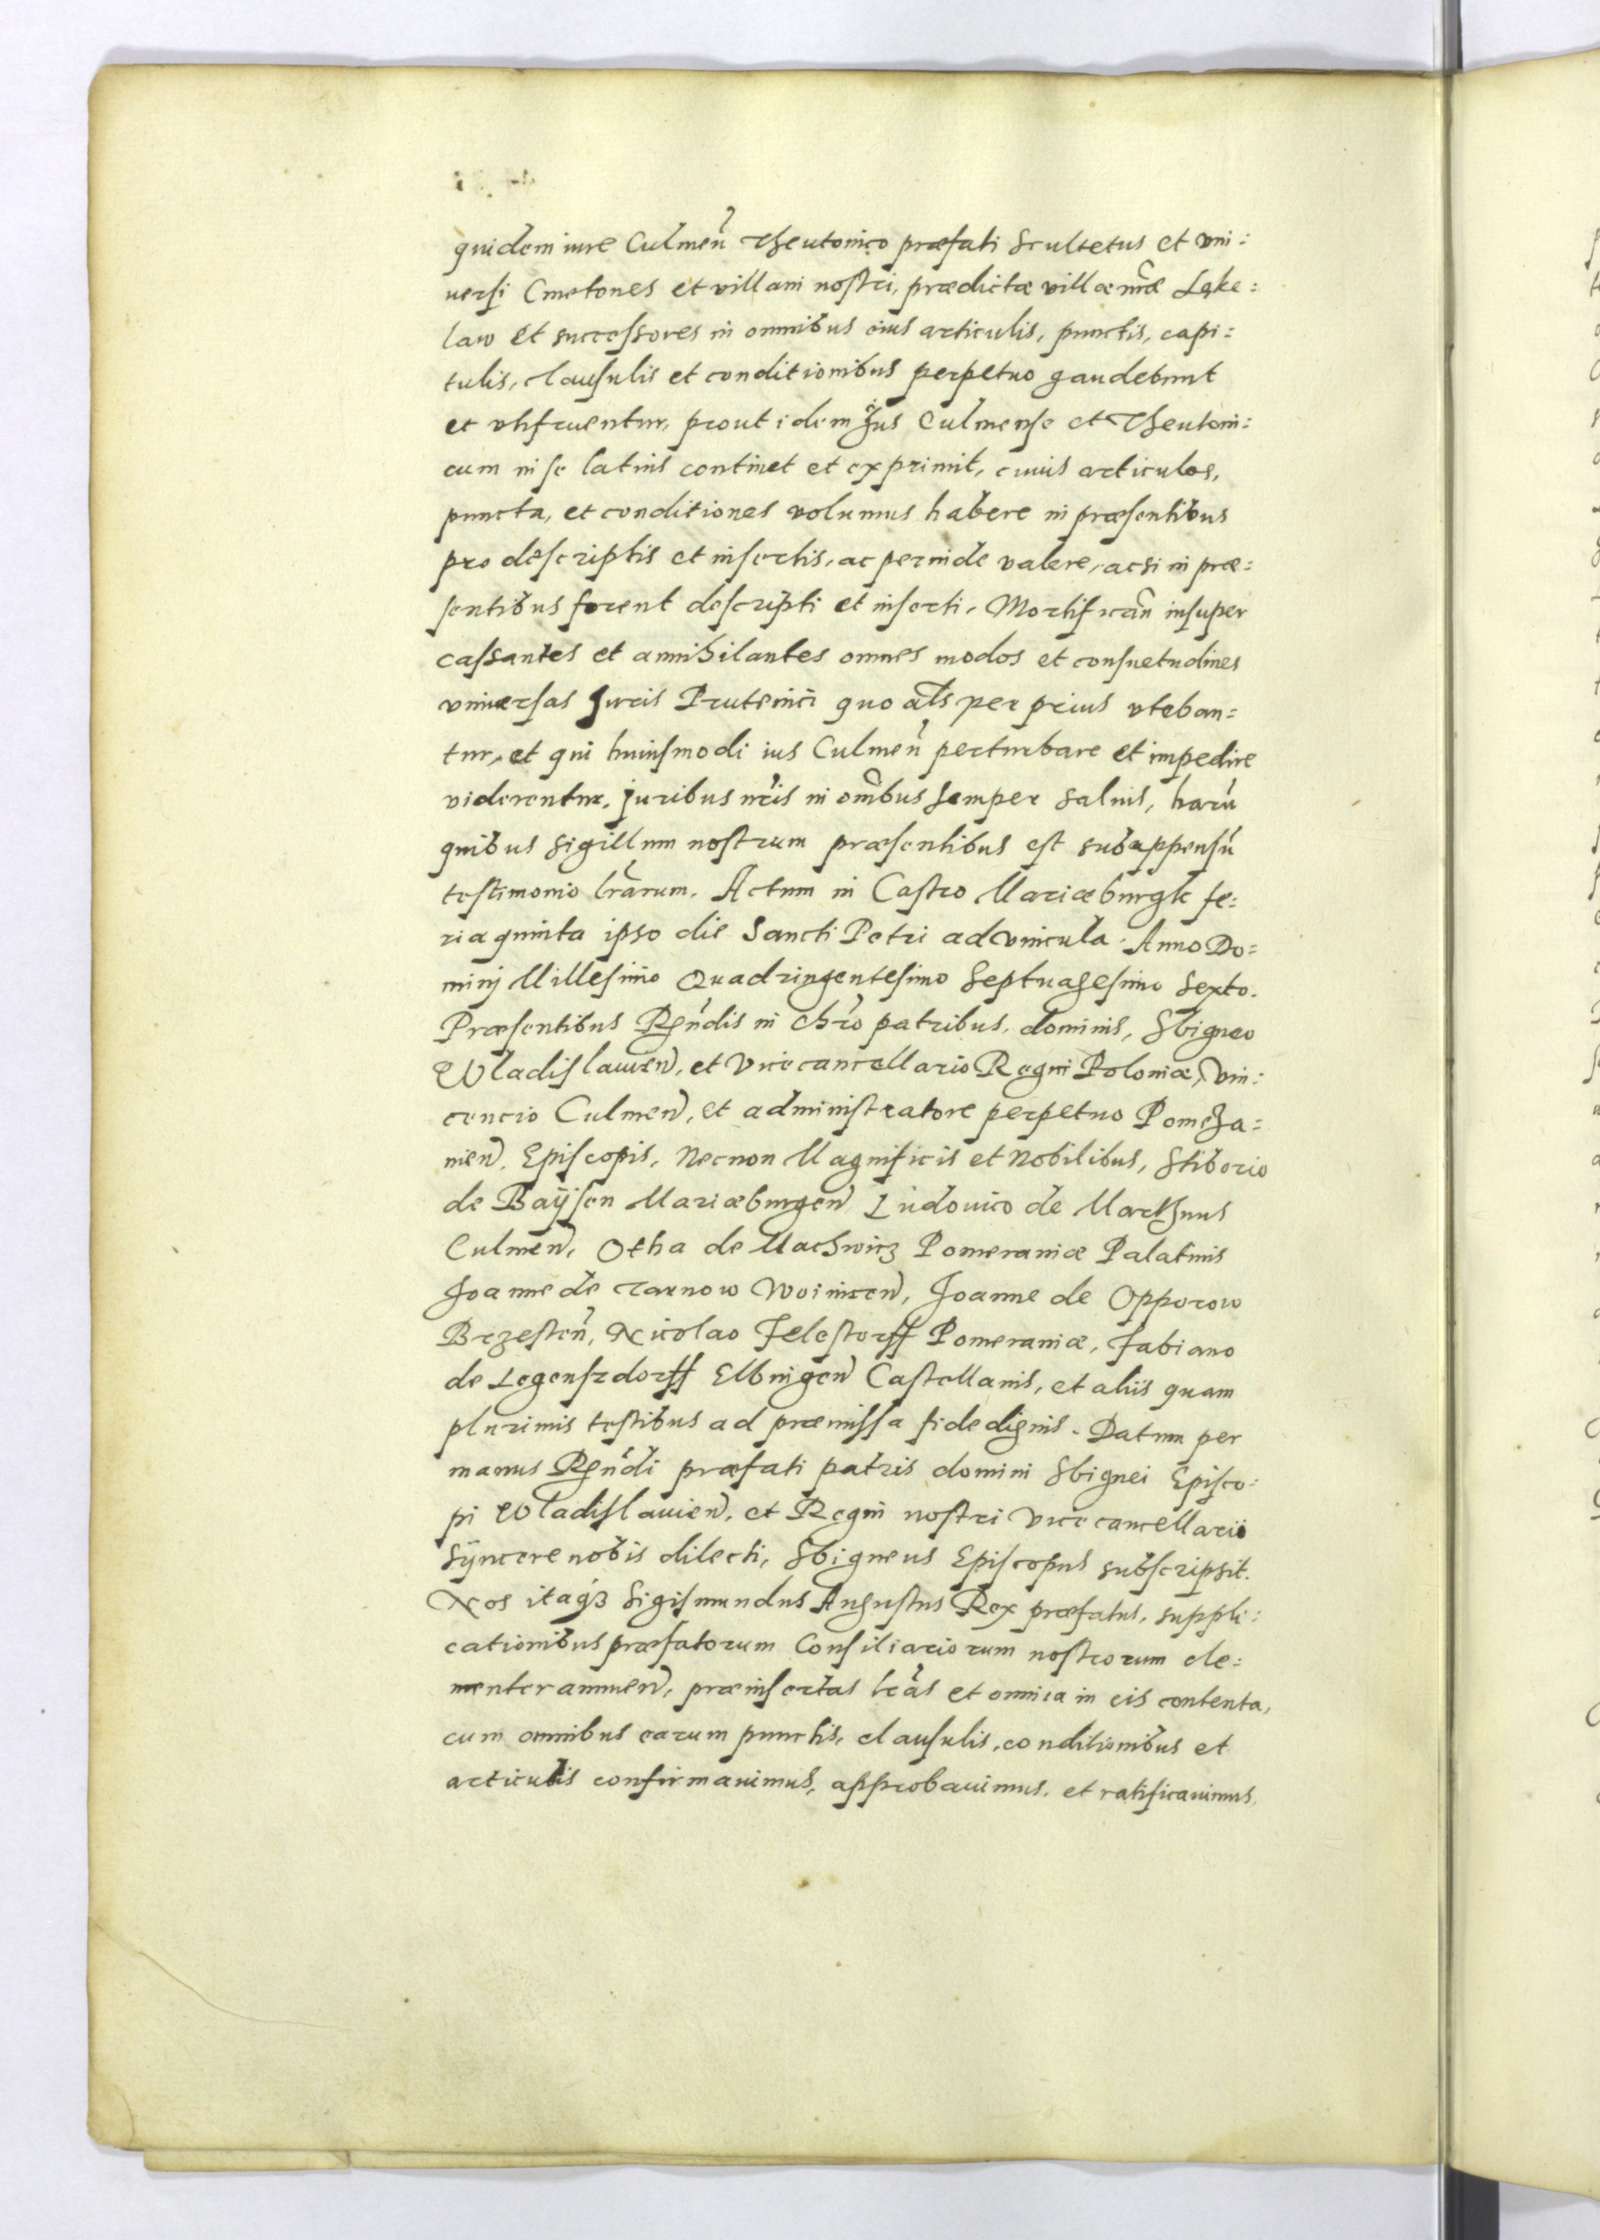 quidem iure Culmeñ Theutonico præfati Scultetus et vni:
uersi Cmetones et villani nostri, prædictæ villæ nrãe Lęke:
law et successores in omnibus eius articulis, punctis, capi:
tulis, clausulis et conditionibus perpetuo gaudebunt
et vtifruentur, prout idem Jus Culmense et Theutoni:
cum in se latius continet et exprimit, cuius articulos,
puncta, et conditiones volumus habere in præsentibus
pro descriptis et insertis, ac perinde valere, ac si in præ:
sentibus forent descripti et inserti, Mortificañ insuper
cassantes et annihilantes omnes modos et consuetudines
vniuersas Juris Prutenici quo als per prius vteban:
tur, et qui huiusmodi ius Culmeñ perturbare et impedire
viderentur, Juribus nris in omibus semper saluis, harũ
quibus sigillum nostrum præsentibus est subappensũ
testimonio lrarum. Actum in Castro Mariæburgk fe:
ria quinta ipso die Sancti Petri ad vincula. Anno Do:
minj Millesimo Quadringentesimo Septuagesimo Sexto.
Præsentibus Rñdis in chro patribus, dominis, Sbigneo
Wladislauień, et Vicecancellario Regni Poloniæ, Vin:
cencio Culmeñ, et administratore perpetuo Pomeza:
nień, Episcopis, Necnon Magnificis et Nobilibus, Stiborio
de Baÿsen Mariæburgeñ Ludouico de Marthnus
Culmeñ, Otha de Machwicz Pomeraniæ Palatinis
Joanne de Tarnow Woiniceñ, Joanne de Opporow
Brzesteñ, Nicolao Felestorff Pomeraniæ, Fabiano
de Legensrdorff Elbingeñ Castellanis, et aliis quam
plurimis testibus ad præmissa fide dignis. Datum per
manus Rñdi præfati patris domini Sbignei Episco:
pi Wladislauień, et Regni nostri Vicecancellarii
Sÿncere nobis dilecti, Sbigneus Episcopus subscripsit.
Nos itaqз Sigismundus Augustus Rex præfatus, suppli:
cationibus præfatorum Consiliariorum nostrorum cle:
menter annueñ, præinsertas lras et omnia in eis contenta,
cum omnibus earum punctis, clausulis, conditionibus et
articulis confirmauimus, approbauimus, et ratificauimus,